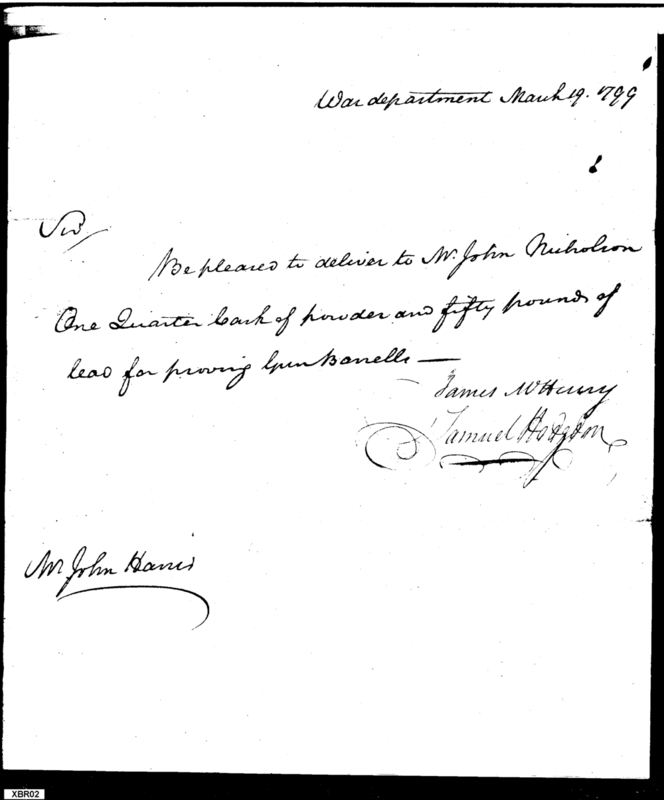 War department March 19. 1799
Sir
Be pleased to deliver to Mr. John Nicholson
One Quarter Cask of powder and fifty pounds of
lead for proving Gun Barrells —
James McHenry
Samuel Hodgdon
Mr John Harris
XBR02